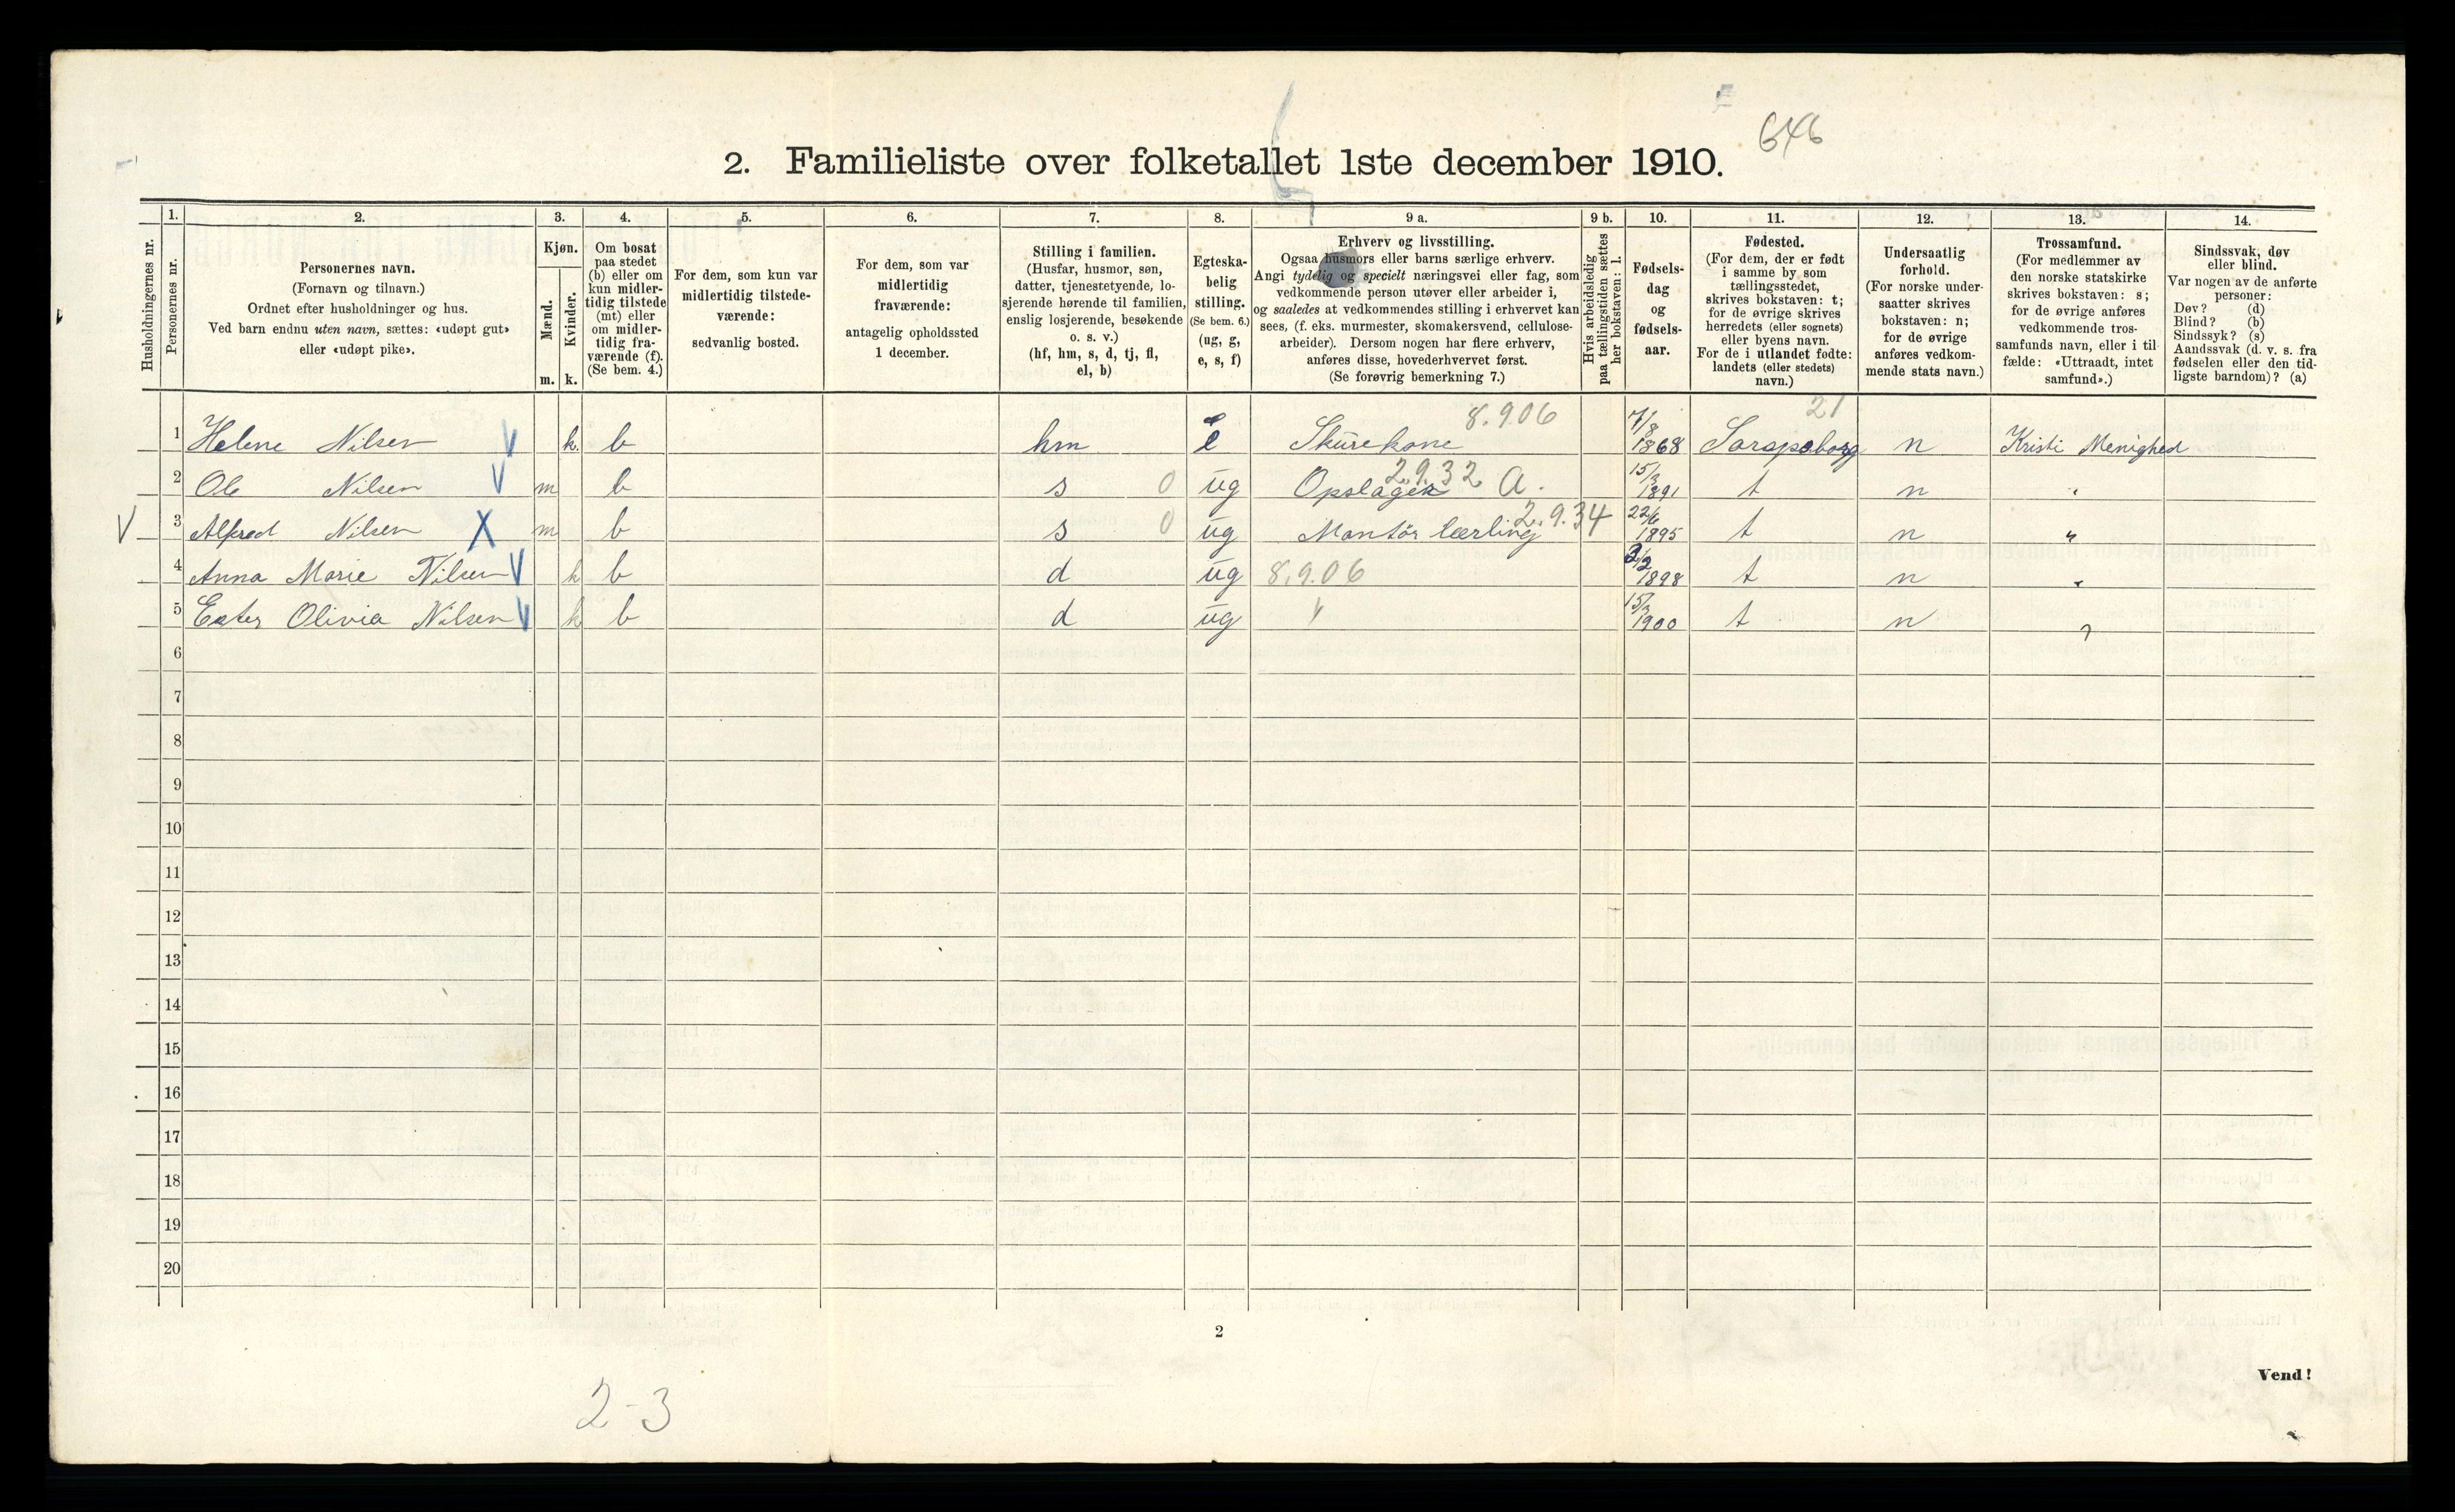 646
2. Familieliste over folketallet 1ste december 1910.
Husholdningernes nr.
1. Personernes nr.
2. Personernes navn.
(Fornavn og tilnavn.)
Ordnet efter husholdninger og hus.
Ved barn endnu uten navn, sættes: «udøpt gut»
eller «udøpt pike».
3. Kjøn.
Mænd. m.
Kvinder. k.
4. Om bosat
paa stedet
(b) eller om
kun midler-
tidig tilstede
(mt) eller
om midler-
tidig fra-
værende (f).
(Se bem. 4.)
5. For dem, som kun var
midlertidig tilstede-
værende:
sedvanlig bosted.
6. For dem, som var
midlertidig
fraværende:
antagelig opholdssted
1 december.
7. Stilling i familien.
(Husfar, husmor, søn,
datter, tjenestetyende, lo-
sjerende hørende til familien,
enslig losjerende, besøkende
o. s. v.)
(hf, hm, s, d, tj, fl,
el, b)
8. Egteska-
belig
stilling.
(Se bem. 6.)
(ug, g,
e, s, f)
9 a. Erhverv og livsstilling.
Ogsaa husmors eller barns særlige erhverv.
Angi tydelig og specielt næringsvei eller fag, som
vedkommende person utøver eller arbeider i,
og saaledes at vedkommendes stilling i erhvervet kan
sees, (f. eks. murmester, skomakersvend, cellulose-
arbeider). Dersom nogen har flere erhverv,
anføres disse, hovederhvervet først.
(Se forøvrig bemerkning 7.)
9 b. Hvis arbeidsledig
paa tællingstiden sættes
her bokstaven: l.
10. Fødsels-
dag
og
fødsels-
aar.
11. Fødested.
(For dem, der er født
i samme by som
tællingsstedet,
skrives bokstaven: t;
for de øvrige skrives
herredets (eller sognets)
eller byens navn.
For de i utlandet fødte:
landets (eller stedets)
navn.)
12. Undersaatlig
forhold.
(For norske under-
saatter skrives
bokstaven: n;
for de øvrige
anføres vedkom-
mende stats navn.)
13. Trossamfund.
(For medlemmer av
den norske statskirke
skrives bokstaven: s;
for de øvrige anføres
vedkommende tros-
samfunds navn, eller i til-
fælde: «Uttraadt, intet
samfund».)
14. Sindssvak, døv
eller blind.
Var nogen av de anførte
personer:
Døv? (d)
Blind? (b)
Sindssyk? (s)
Aandssvak (d. v. s. fra
fødselen eller den tid-
ligste barndom)? (a)
8.906 21
1 Helene Nilsen V k. b hm e Skurekone 7/8 1868 Sarpsborg n Kristi Menighed
2 Ole Nilsen V m b s 0 ug Opslager 2.9.32 a. 15/3 1891 t n "
V 3 Alfred Nilsen X m b s 0 ug Montör lærling 2.9.34 22/6 1895 t n "
4 Anna Marie Nilsen V k b d ug 8.9.06 1898 t n "
5 Ester Olivia Nilsen V k b d ug 15/3 1900 t n "
6
7
8
9
10
11
12
13
14
15
16
17
18
19
20
2
Vend!
2-3